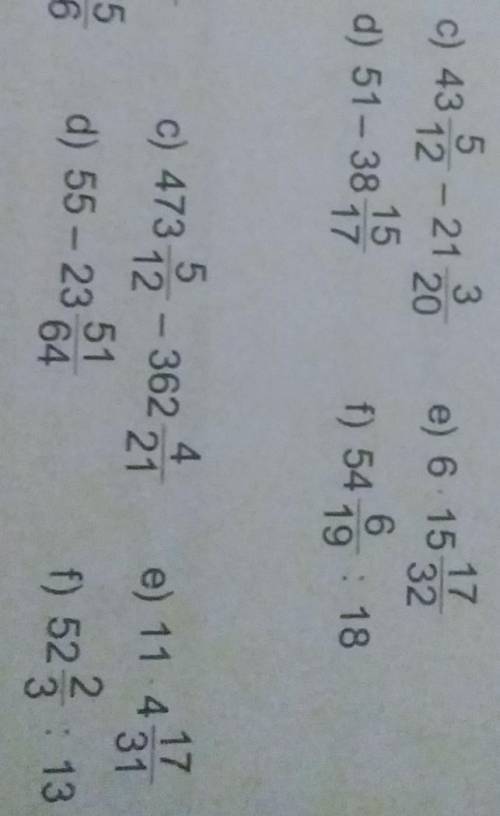 c) 43 5/12 − 21 3/20 e) 6 · 15 17/32
d) 51 − 38 15/17 f) 54 6/19 : 18
c) 473 5/12 − 362 4/21 e) 11 · 4 17/31
5/6 d) 55 − 23 51/64 f) 52 2/3 : 13